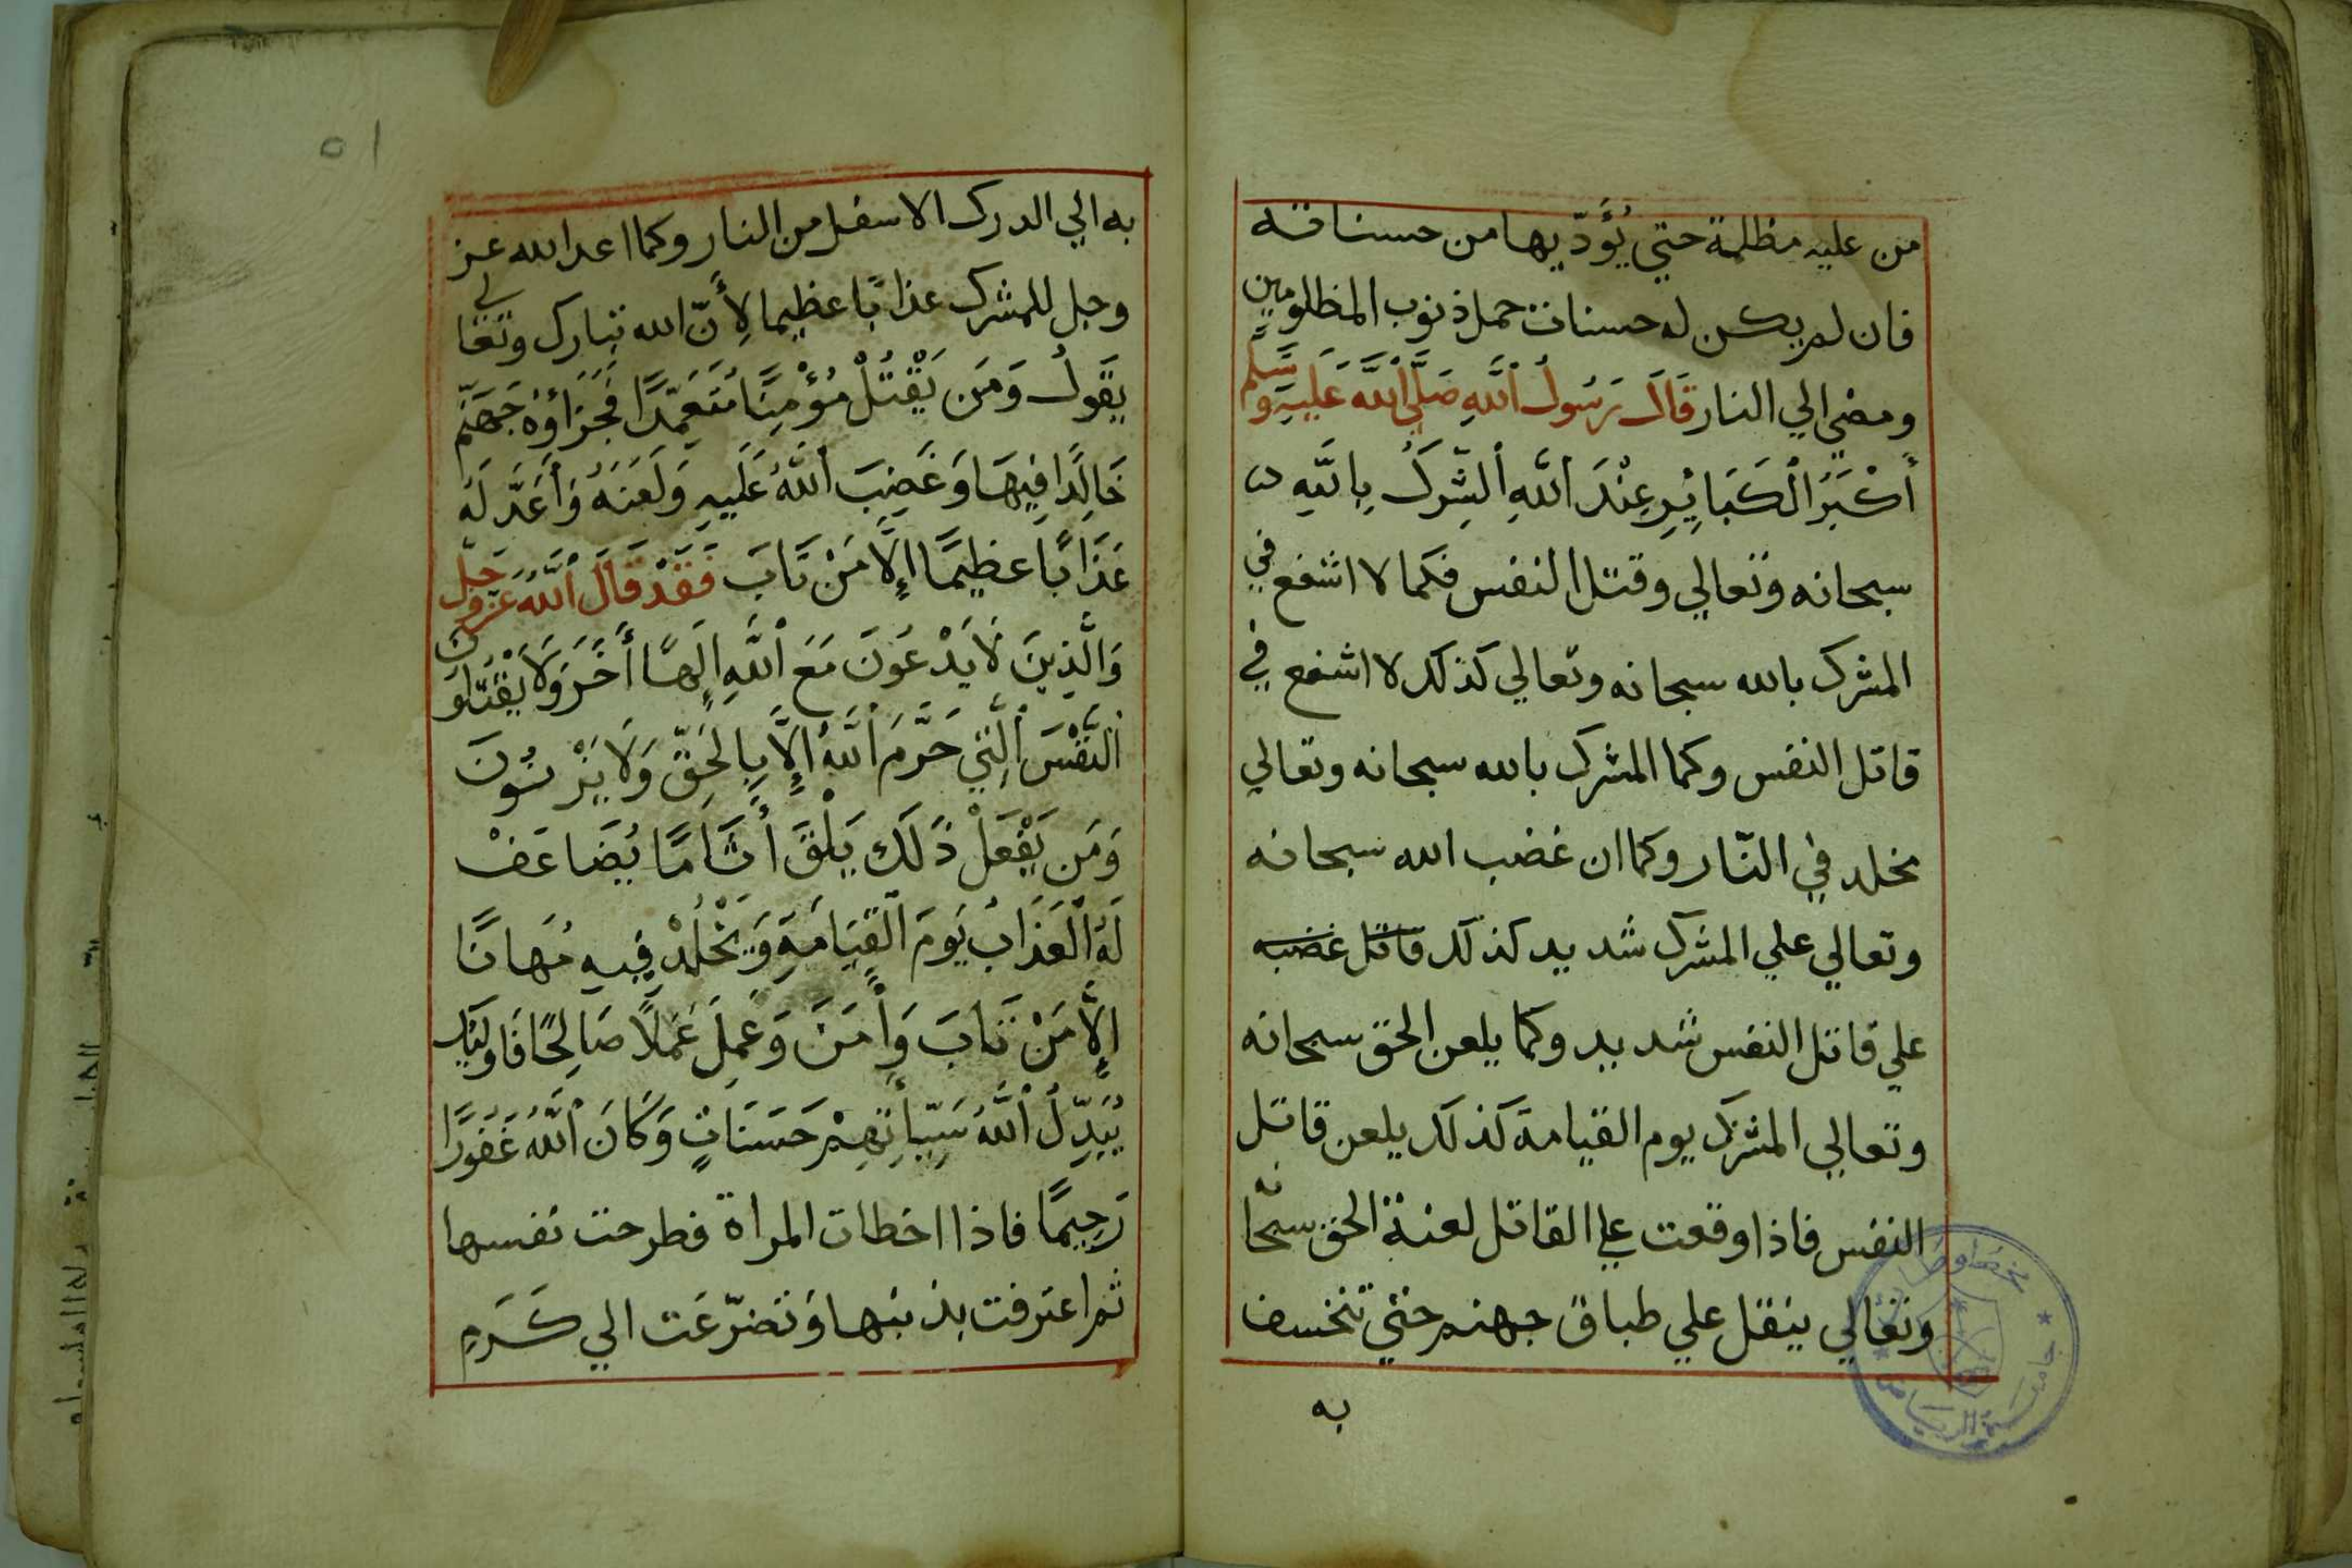 من عليه مظلمة حتي يُؤَدّيها من حسناته
فان لم يكن له حسنات حمل ذنوب المظلومين
ومضي الي النار قَالَ رَسُولُ اللَّهِ صَلَّي اللَّهُ عَلَيهِ وَسَلَّم
أَكْبَرُ الْكَبَائِرِ عِنْدَ اللَّهِ الشِّركُ بِاللَّهِ
سبحانه وتعالي وقتل النفس فكما لا اشفع في
المشرك بالله سبحانه وتعالي كذلك لا اشفع في
قاتل النفس وكما المشرك بالله سبحانه وتعالي
يخلد في النّار وكما ان غضب الله سبحانه
وتعالي علي المشرك شديد كذلك قاتل غضبه
علي قاتل النفس شديد وكما يلعن الحق سبحانه
وتعالي المشرك يوم القيامة كذلك يلعن قاتل
النفس فاذا وقعت علي القاتل لعنة الحق سبحانه
وتعالي ينقل علي طباق جهنم حتي تنخسف
به
٥١
به الي الدرك الاسفل من النار وكما اعد الله عز
وجل للمشرك عذابًا عظيما لِأَنّ الله تبارك وتعالي
يقولُ وَمَن يَقْتُلْ مُؤْمِنًا مُتَعَمِّدًا فَجَزَاؤُهُ جَهَنَّم
خَالِدًا فِيهَا وَغَضِبَ اللَّهُ عَلَيهِ وَلَعَنَهُ وَأَعَدَّ لَهُ
عَذَابًا عظيمًا إِلَّا مَنْ تَابَ فَقَدْ قَالَ اللَّهُ عَزَّوجَلّ
وَالَّذِينَ لَا يَدْعُونَ مَعَ اللَّهِ إِلَهًا أَخَرَ وَلَا يَقْتُلُونَ
النَّفْسَ الَّتِي حَرَّمَ اللَّهُ إِلَّا بِالحَقِّ وَلَا يَزْنُونَ
وَمَن يَفْعَلْ ذَلَك يَلْقَ أَثَامًا يُضَاعَفْ
لَهُ الْعَذَابُ يَومَ الْقِيَامَةِ وَيَخْلُدْ فِيهِ مُهَانًا
إِلَّا مَنْ تَابَ وَأَمَنَ وَعَمِلَ عَمَلًا صَالِحًا فَاولَئِك
يُبَدِّلُ اللَّهُ سَيِّأَتِهِمْ حَسَنَاتٍ وَكَانَ اللَّهُ غَفُورًا
رَحِيمًا فاذا اخطات المراة فطرحت نفسها
ثم اعترفت بذنبها وَتضرّعَت الي كَرَمِ
جامعة الرياض